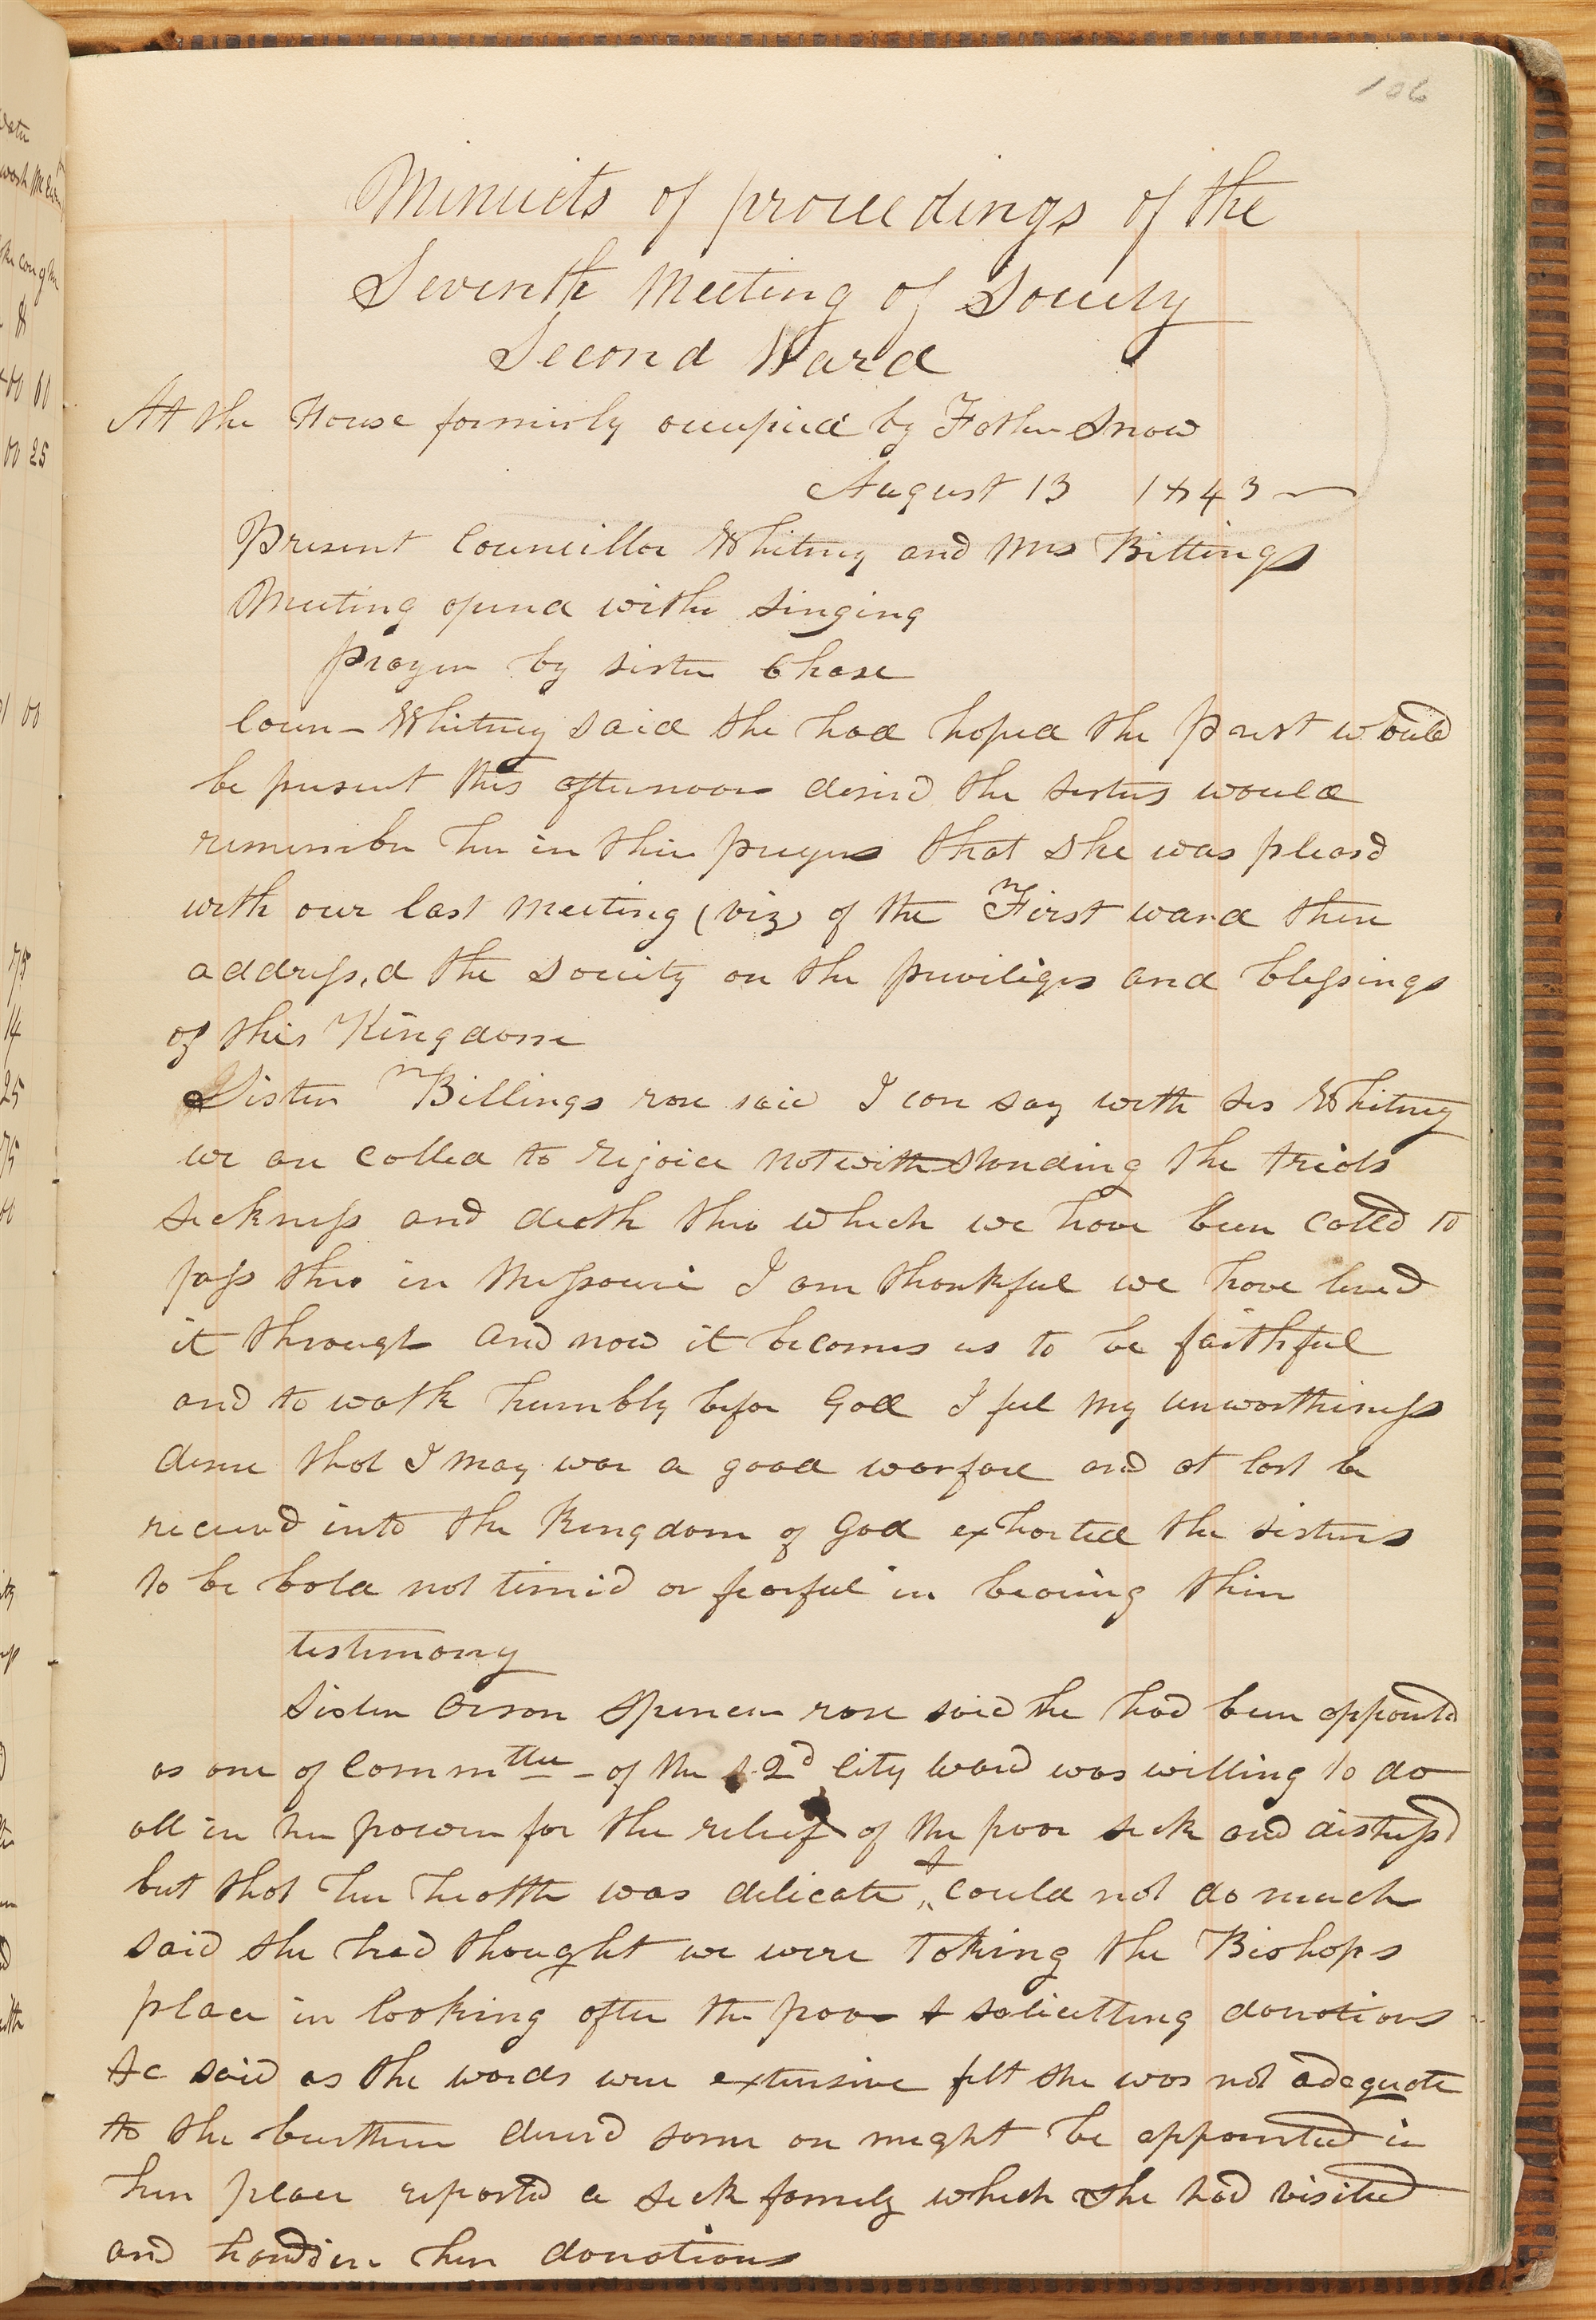 106
Minuets of proceedings of the
Seventh Meeting of Society
Second Ward
At the House formerly occupied by Father Snow
August 13 1843
Present Councillor Whitney and Mrs Billings
Meeting opend withe singing
prayer by sister Chase
Coun- Whitney said she had hoped the Prest would
be present this afternoon desird the sisters would
remember her in thier prayers that she was pleasd
with our last meeting (viz) of the First ward then
address,d the Society on the priviliges and blessings
of this Kingdom
Sister Billings rose said I can say with Sis Whitney
we are called to rejoice notwithstanding the trials
sickness and death thro which we have been calld to
pass thro in Missouri I am thankful we have lived
it through and now it becomes us to be faithful
and to walk humbly befor God I feel my unworthiness
desire that I may war a good warfare and at last be
receivd into the Kingdom of God exhorted the sisters
to be bold not timid or fearful in bearing thier
testimony
Sister Orson Spencer rose said she had been appointd
as one of Commttee - of the 2d City Ward was willing to do
all in her power for the relief of the poor sick and distressd
but that her health was delicate & could not do much
said she had thought we were taking the Bishops
place in looking after the poor & solicitting donations
&c said as the wards were extensive felt she was not adequate
to the burthen desird some one might be appointed in
her place reported a sick family which she had visited
and handed in her donations
75
14
25
75
00
00 25